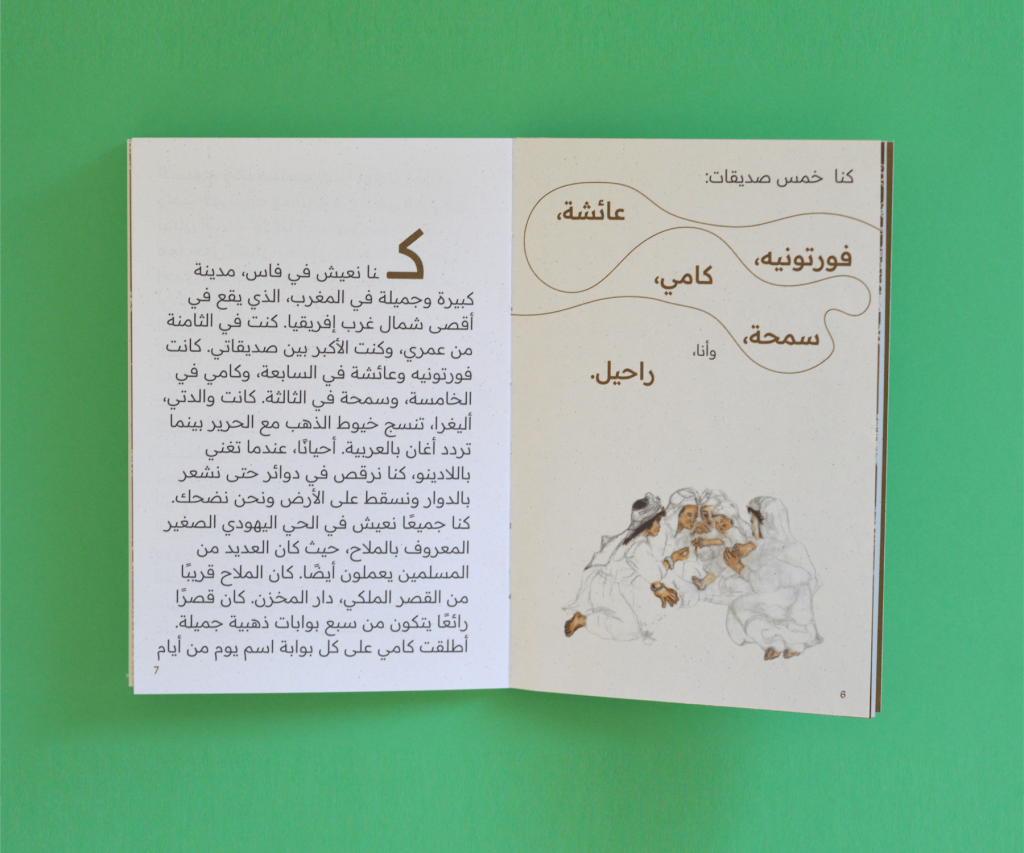 كنا خمس صديقات:
عائشة،
فورتونيه،
كامي،
سمحة،
وأنا،
راحيل.
6
كنا نعيش في فاس، مدينة
كبيرة وجميلة في المغرب، الذي يقع في
أقصى شمال غرب إفريقيا. كنت في الثامنة
من عمري، وكنت الأكبر بين صديقاتي. كانت
فورتونيه وعائشة في السابعة، وكامي في
الخامسة، وسمحة في الثالثة. كانت والدتي،
أليغرا، تنسج خيوط الذهب مع الحرير بينما
تردد أغان بالعربية. أحيانًا، عندما تغني
باللادينو، كنا نرقص في دوائر حتى نشعر
بالدوار ونسقط على الأرض ونحن نضحك.
كنا جميعًا نعيش في الحي اليهودي الصغير
المعروف بالملاح، حيث كان العديد من
المسلمين يعملون أيضًا. كان الملاح قريبًا
من القصر الملكي، دار المخزن. كان قصرًا
رائعًا يتكون من سبع بوابات ذهبية جميلة.
أطلقت كامي على كل بوابة اسم يوم من أيام
7